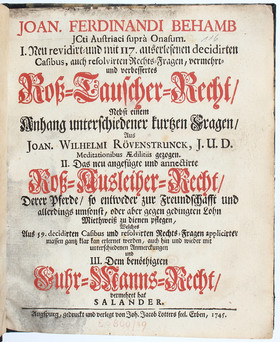 JOAN. FERDINANDI BEHAMB
JCti Austriaci suprà Onasum.
I. Neu revidirt- und mit 117. auserlesenen decidirten
Casibus, auch resolvirten Rechts-Fragen, vermehrt-
und verbessertes
Roß-Tauscher-Recht/
Nebst einem
Anhang unterschiedener kurtzen Fragen/
Aus
JOAN. WILHELMI RÖVENSTRUNCK, J. U. D.
Meditationibus Ædilitiis gezogen.
II. Das neu angefügte und annectirte
Roß-Ausleiher-Recht/
Derer Pferde/ so entweder zur Freundschafft und
allerdings umsonst, oder aber gegen gedingten Lohn
Miethweiß zu dienen pflegen,
Welches
Aus 59. decidirten Casibus und resolvirten Rechts-Fragen applicirter
massen gantz klar kan erlernet werden, auch hin und wieder mit
unterschiedenen Anmerckungen
und
III. Dem benöthigten
Fuhr-Manns-Recht/
vermehret hat
SALANDER.
Augspurg, gedruckt und verlegt von Joh. Jacob Lotters seel. Erben, 1745.